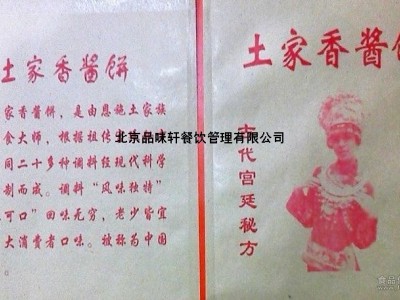 土家香酱饼
家香酱饼，是由恩施土家族
食大师，根据祖传
同二十多种调料经现代科学
制而成。调料“风味独特”
可口”回味无穷，老少皆宜
大消费者口味。被称为中国
北京品味轩餐饮管理有限公司
土家香酱
古代宫廷秘方